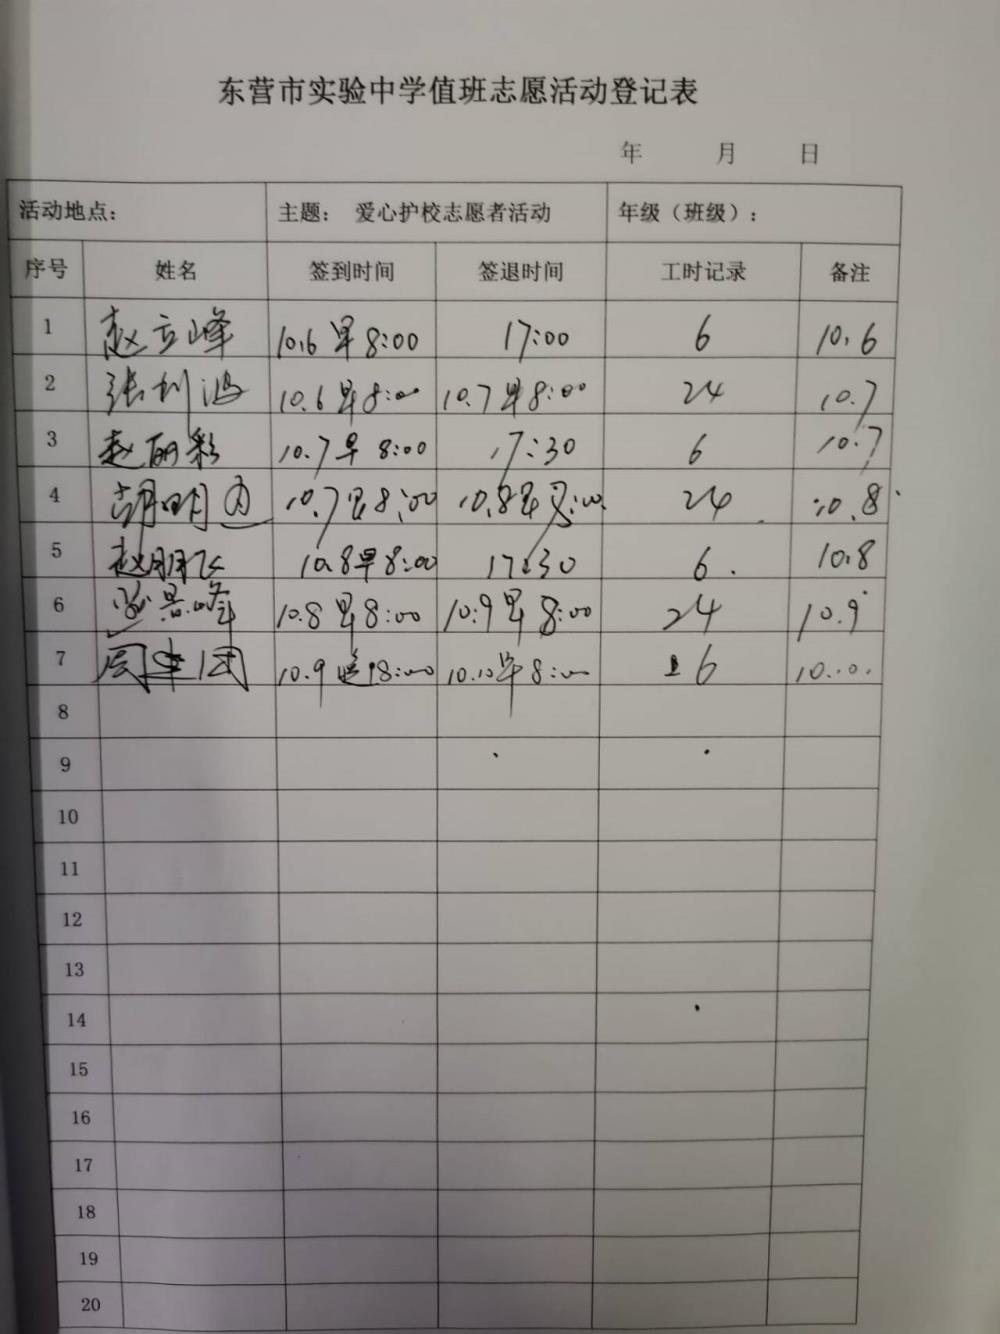 东营市实验中学值班志愿活动登记表
年 月 日
活动地点： 主题： 爱心护校志愿者活动 年级（班级）：
序号 姓名 签到时间 签退时间 工时记录 备注
1 赵立峰 10.6早8:00 17:00 6 10.6
2 张利波 10.6早8:00 10.7早8:00 24 10.7
3 赵丽彩 10.7早8:00 17:30 6 10.7
4 胡明 10.7早8:00 10.8早8:00 24 10.8
5 赵鹏飞 10.8早8:00 17:30 6. 10.8
6 景峰 10.8早8:00 10.9早8:00 24 10.9
7 周建团 10.9 18:00 10.10早8:00 6
8
9
10
11
12
13
14
15
16
17
18
19
20